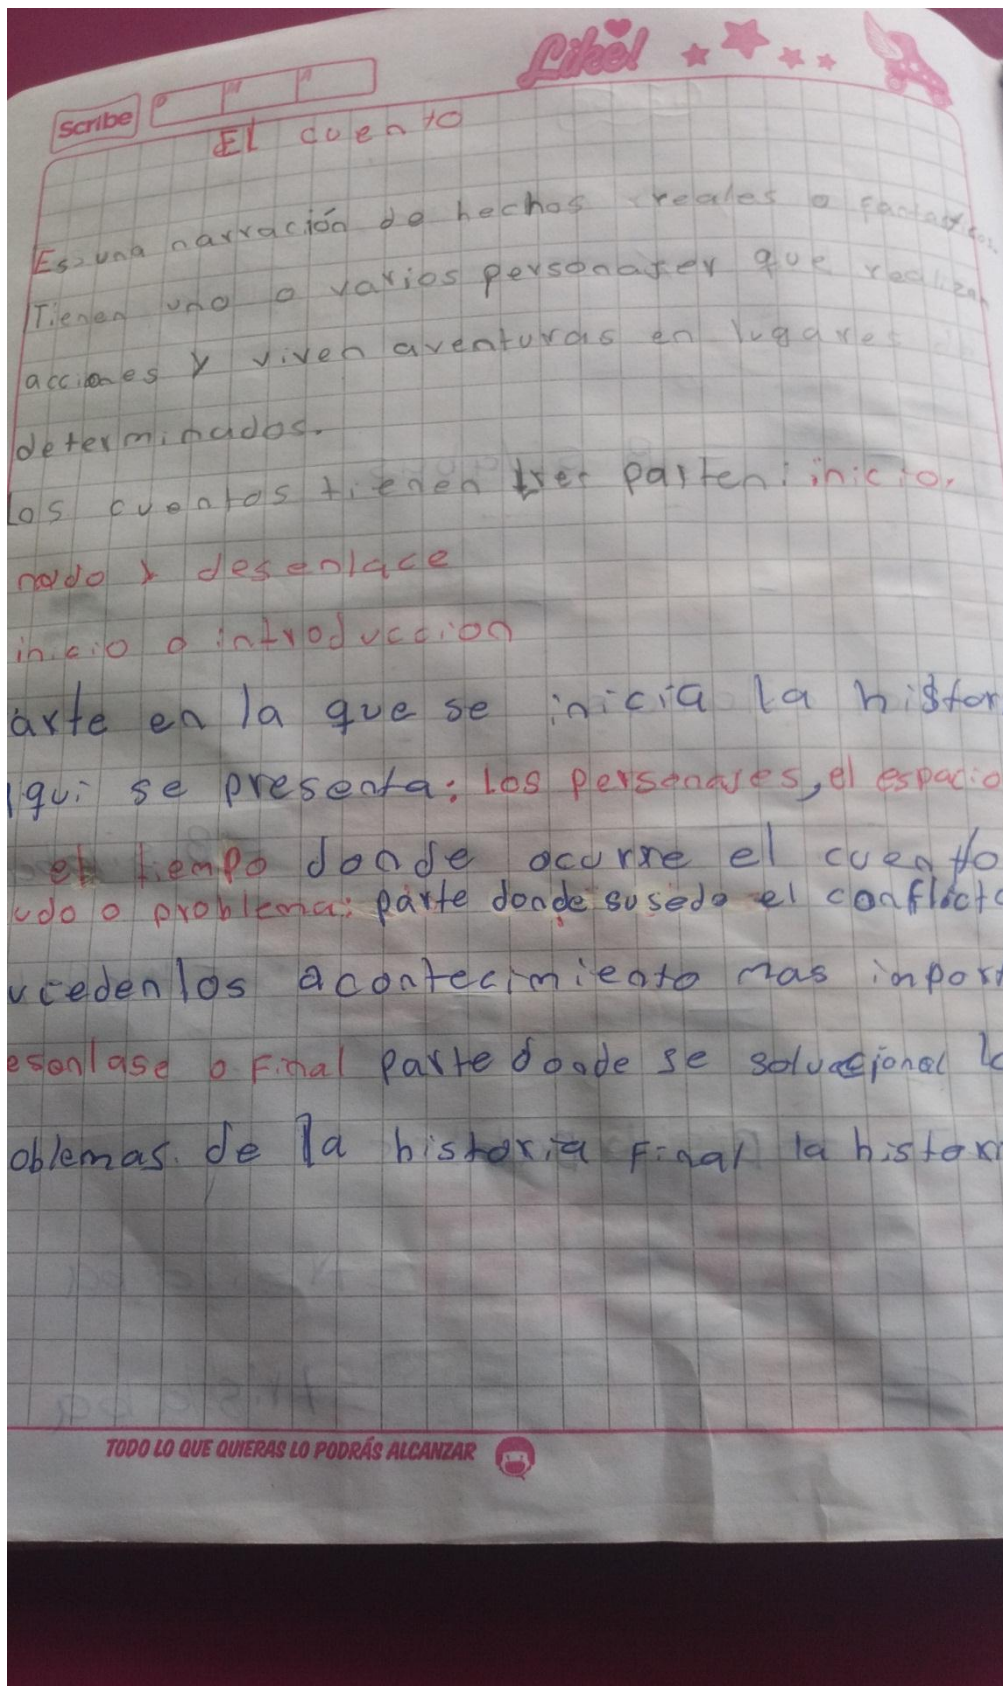 Like!
Scribe
D M A
El cuento
Es una narración de hechos reales o
Tienen uno o varios personajer que realizan
acciones y viven aventuras en lugares
determinados.
Los cuentos tienen tres parten: inicio,
nodo y desenlace
inicio o introduccion
arte en la que se inicia la histor
qui se presenta: los personajes, el espacio
el tiempo donde ocurre el cuento
udo o problema: parte donde susede el conflicto
uceden los acontecimiento mas inport
esenlase o Final parte donde se
oblemas. de la historia Final la histori
TODO LO QUE QUIERAS LO PODRÁS ALCANZAR